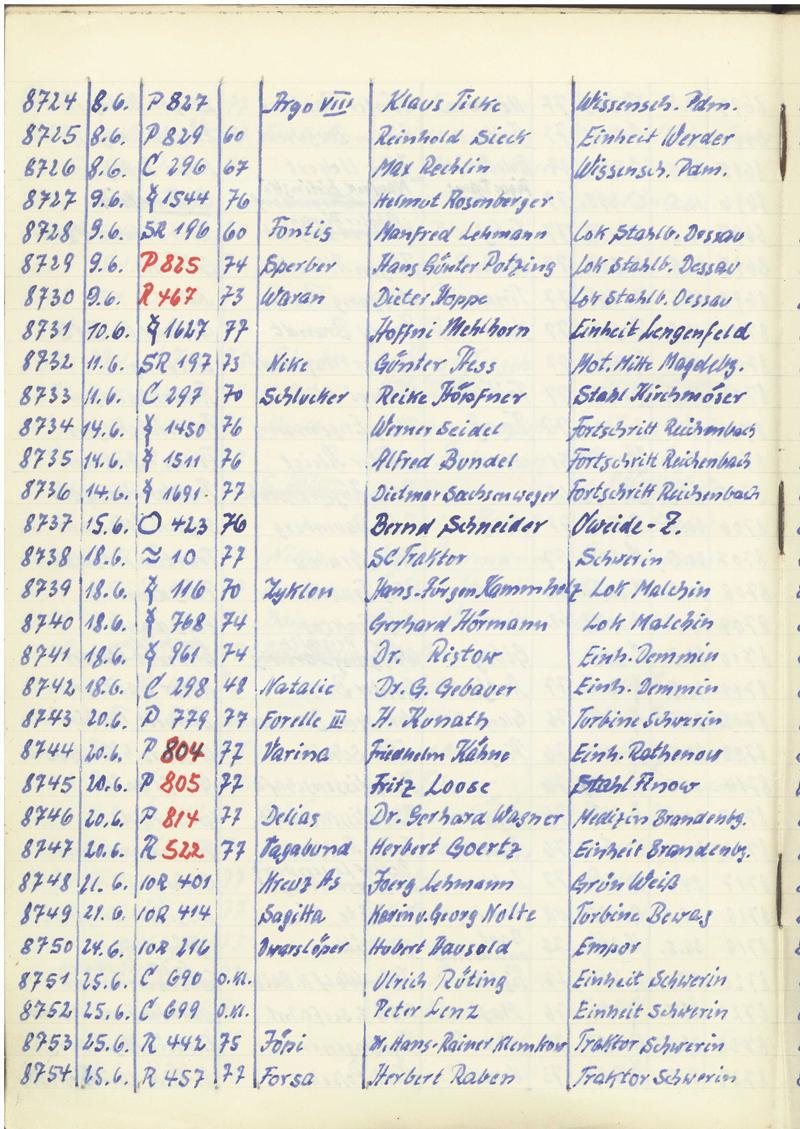 8724 8.6. P 827 Argo VIII Klaus Ticke Wissensch. Pdm.
8725 8.6. P 829 60 Reinhold Sieck Einheit Werder
8726 8.6. C 296 67 Max Rechlin Wissensch. Pdm.
8727 9.6. 1544 76 Helmut Rosenberger
8728 9.6. SR 196 60 Fontis Manfred Lehmann Lok Stahlb. Dessau
8729 9.6. P 825 74 Sperber Hans Günter Potzing Lok Stahlb. Dessau
8730 9.6. R 467 73 Waran Dieter Hoppe Lok Stahlb. Dessau
8731 10.6. 1627 77 Hoffni Mehlhorn Einheit Lengenfeld
8732 11.6. SR 197 73 Nike Günter Hess Mot. Mitte Magdebg.
8733 11.6. C 297 70 Schlucker Reike Höpfner Stahl Kirchmöser
8734 14.6. 1450 76 Werner Seidel Fortschritt Reichenbach
8735 14.6. 1511 76 Alfred Bundel Fortschritt Reichenbach
8736 14.6. 1691 77 Dietmar Sachsenweger Fortschritt Reichenbach
8737 15.6. O 423 76 Bernd Schneider Olweide-Z.
8738 18.6. ≈ 10 77 SC Traktor Schwerin
8739 18.6. 116 70 Zyklon Hans-Jürgen Hammholz Lok Malchin
8740 18.6. 768 74 Gerhard Hörmann Lok Malchin
8741 18.6. 961 74 Dr. Ristow Einh. Demmin
8742 18.6. C 298 48 Natalie Dr. G. Gebauer Einh. Demmin
8743 20.6. P 779 77 Forelle III H. Kunath Turbine Schwerin
8744 20.6. P 804 77 Varina Friedhelm Hähne Einh. Rathenow
8745 20.6. P 805 77 Fritz Loose Stahl Finow
8746 20.6. P 814 77 Delias Dr. Gerhard Wagner Medizin Brandenbg.
8747 20.6. R 522 77 Vagabund Herbert Goertz Einheit Brandenbg.
8748 21.6. 10R 401 Kreuz As Joerg Lehmann Grün Weiß
8749 21.6. 10R 414 Sagitta Karin u. Georg Nolte Turbine Bewag
8750 24.6. 10R 216 Dwarslöper Hubert Hausold Empor
8751 25.6. C 690 o.Kl. Ulrich Röting Einheit Schwerin
8752 25.6. C 699 o.Kl. Peter Lenz Einheit Schwerin
8753 25.6. R 442 75 Jöpi Hans-Rainer Klemkow Traktor Schwerin
8754 25.6. R 457 77 Forsa Herbert Raben Traktor Schwerin